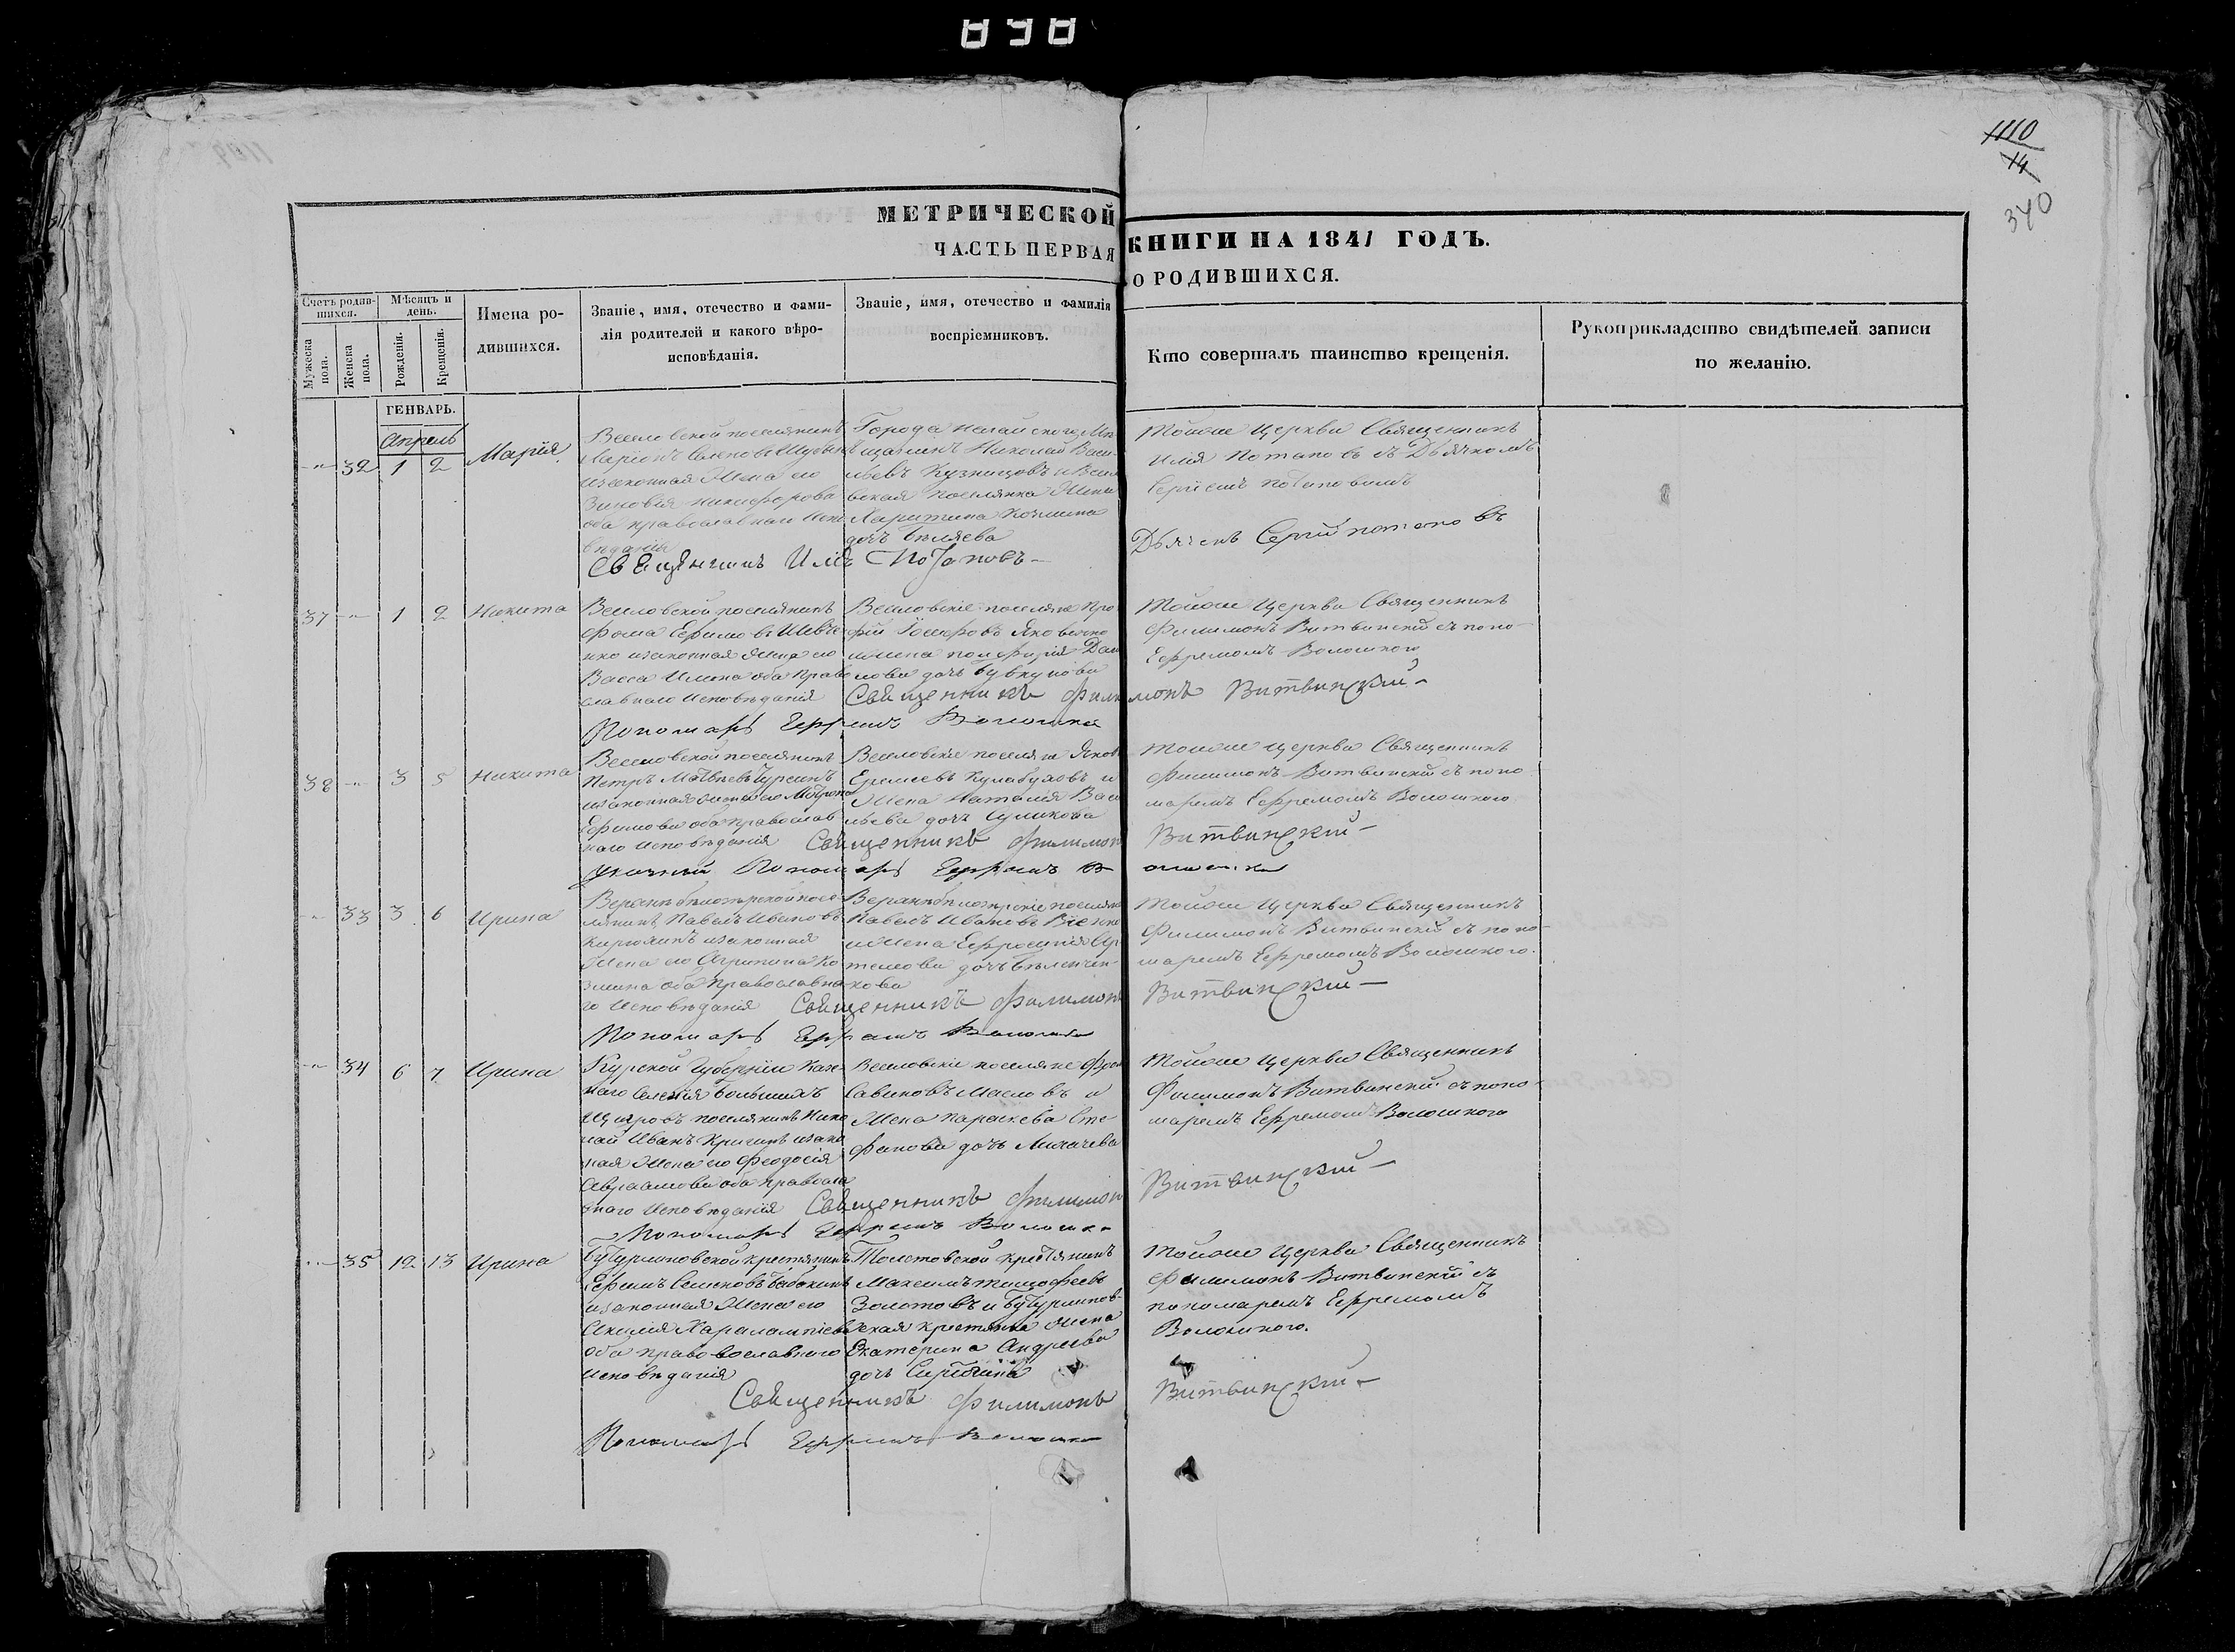 898
1110
14
340
МЕТРИЧЕСКОЙ КНИГИ НА 1841 ГОДЪ.
ЧАСТЬ ПЕРВАЯ О РОДИВШИХСЯ.
Счетъ родив-
шихся.
Мужеска
пола.
Женска
пола.
Мѣсяцъ и
день.
Рожденія.
Крещенія.
Имена ро-
дившихся.
Званіе, имя, отечество и фами-
лія родителей и какого вѣро-
исповѣданія.
Званіе, имя, отечество и фамилія
воспріемниковъ.
Кто совершалъ таинство крещенія.
Рукоприкладство свидѣтелей записи
по желанію.
ГЕНВАРЬ.
Апрель
32 1 2 Марія
Веселовской поселянинъ
изаконная Жена его
Зиновія Никифорова
оба православнаго Испо
вѣданія
Города Ногайскаго Мѣ
щанинъ Николай Васи
льевъ Кузницовъ и Весело
вская поселянка
Харитина
дочь Бѣляева
Тойже Церкви Священникъ
Илія Потаповъ съ Дьячкомъ
Сергіемъ Потаповымъ
Священникъ Илія Потаповъ
Дьячекъ Сергій Потаповъ
37 1 2 Никита
Веселовской поселянинъ
Фома Ефимовъ Шевче
нко изаконная Жена его
Васса оба Право
славнаго Исповѣданія
Веселовскіе поселяне Про
фій Іосифовъ Яковенко
ижена
нова дочь
Тойже Церкви Священникъ
Филимонъ Витвинскій съ поно
Ефремомъ Волошкого
Священникъ Филимонъ Витвинскій
Пономарь Ефремъ Волошка
38 3 5 Никита
Веселовской поселянинъ
Петръ Матвѣевъ
изаконная Жена его Мотрона
Ефимова оба православ
наго Исповѣданія
Веселовскіе поселяне Яковъ
Еремеевъ Кулабуховъ и
Жена Наталія Васи
льева дочь Суликова
Тойже Церкви Священникъ
Филимонъ Витвинскій съ поно
маремъ Ефремомъ Волошкого
Священникъ Филимонъ Витвинскій
Пономарь Ефремъ
33 3 6 Ирина
лянинъ Павелъ Ивановъ
Кирюхинъ изаконная
Жена его Агрипина Ко
змина оба Православна
го Исповѣданія
Павелъ Ивановъ
ижена Ефросинія Ар
темова дочь
кова
Тойже Церкви Священникъ
Филимонъ Витвинскій съ поно
маремъ Ефремомъ Волошкого.
Священникъ Филимонъ Витвинскій
Пономарь Ефремъ Волошка
34 6 7 Ирина
Курской Губерніи Каз
наго Селенія Большихъ
Щигровъ поселянинъ Нико
лай Иванъ изако
ная Жена его Феодосія
Авраамова оба Православ
наго Исповѣданія
Веселовскіе поселяне
Савиновъ Масловъ и
Жена Параскева Сте
фанова дочь Лихачева
Тойже Церкви Священникъ
Филимонъ Витвинскій съ поно
маремъ Ефремомъ Волошкого
Священникъ Филимонъ Витвинскій
Пономарь Ефремъ Волошка
35 12 13 Ирина
Бутурлиновской крестянинъ
Ефимъ Семеновъ Бабакинъ
изаконная Жена его
Акилія Харалампіева
оба православнаго
Исповѣданія
Толстовской крестянинъ
Максимъ Тимофеевъ
Золотовъ и Бутурлинов
ская крестянка Жена
Екатерина Андреева
дочь
Тойже Церкви Священникъ
Филимонъ Витвинскій съ
пономаремъ Ефремомъ
Волошкого.
Священникъ Филимонъ Витвинскій
Пономарь Ефремъ Волошка